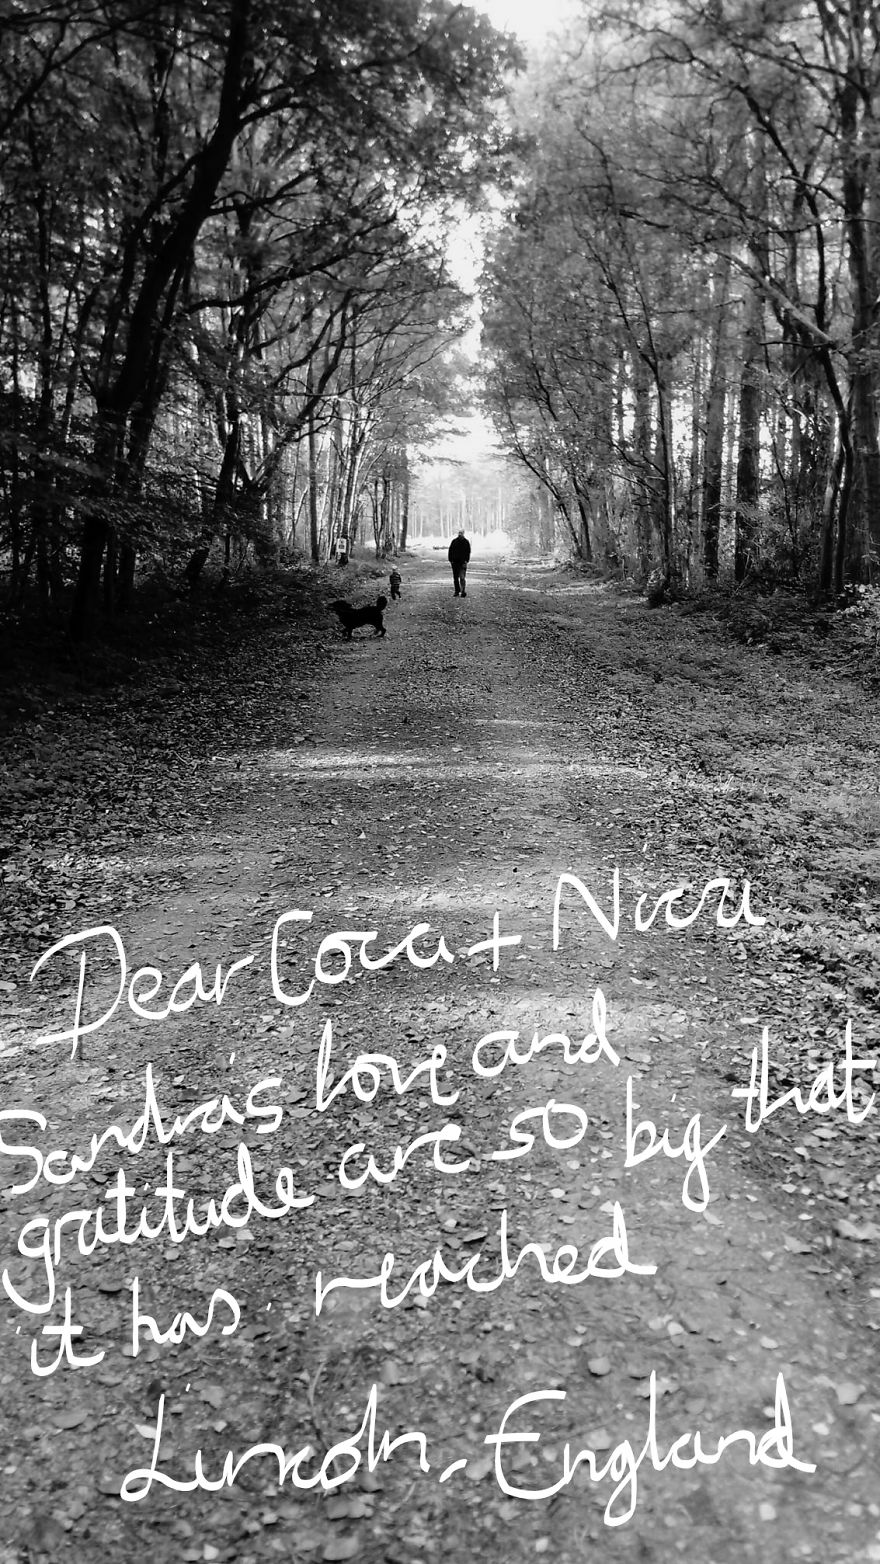 Dear Coca + Nicu
Sandra's love and
gratitude are so big that
it has reached
Lincoln - England